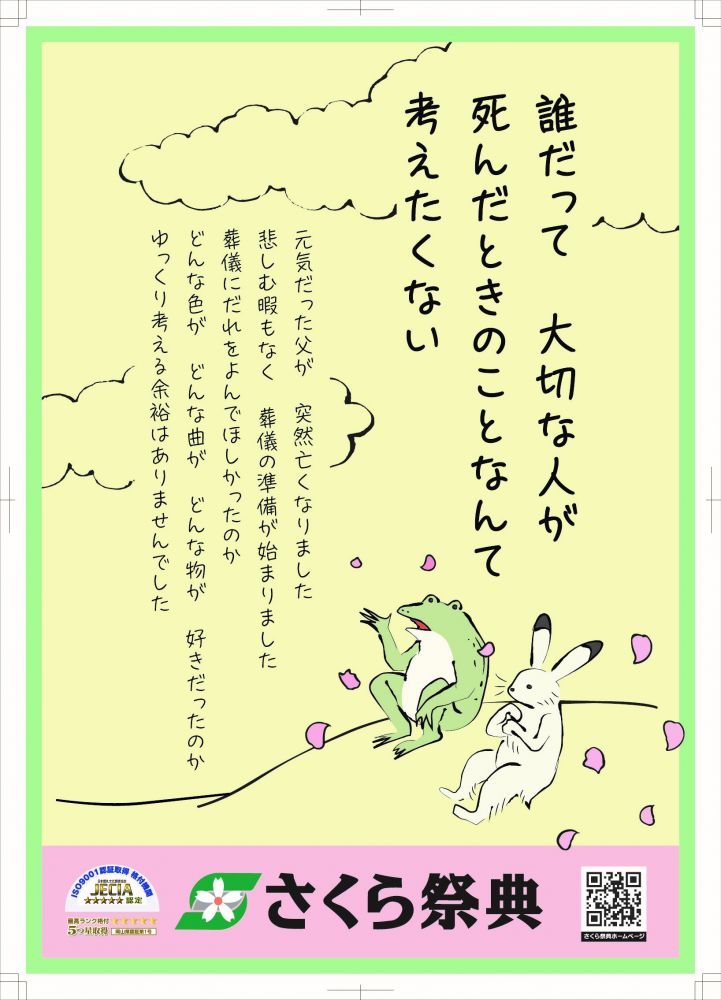 誰だって　大切な人が
死んだときのことなんて
考えたくない
元気だった父が　突然亡くなりました
悲しむ暇もなく　葬儀の準備が始まりました
葬儀にだれをよんでほしかったのか
どんな色が　どんな曲が　どんな物が　好きだったのか
ゆっくり考える余裕はありませんでした
ISO9001認証取得 格付機関
JECIA
★★★★★ 認定
最高ランク格付 ★★★★★
5つ星取得 岡山県認証第1号
さくら祭典
さくら祭典ホームページ